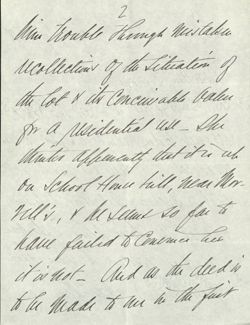 2
him trouble through mistaken
recollections of the situation of
the lot & its conceivable value
for a residential use - She
thinks apparently that it is up
on School House hill, near Mor-
rill's, & he seems so far to
have failed to convince her
it is not - And as the deed is
to be made to me in the first